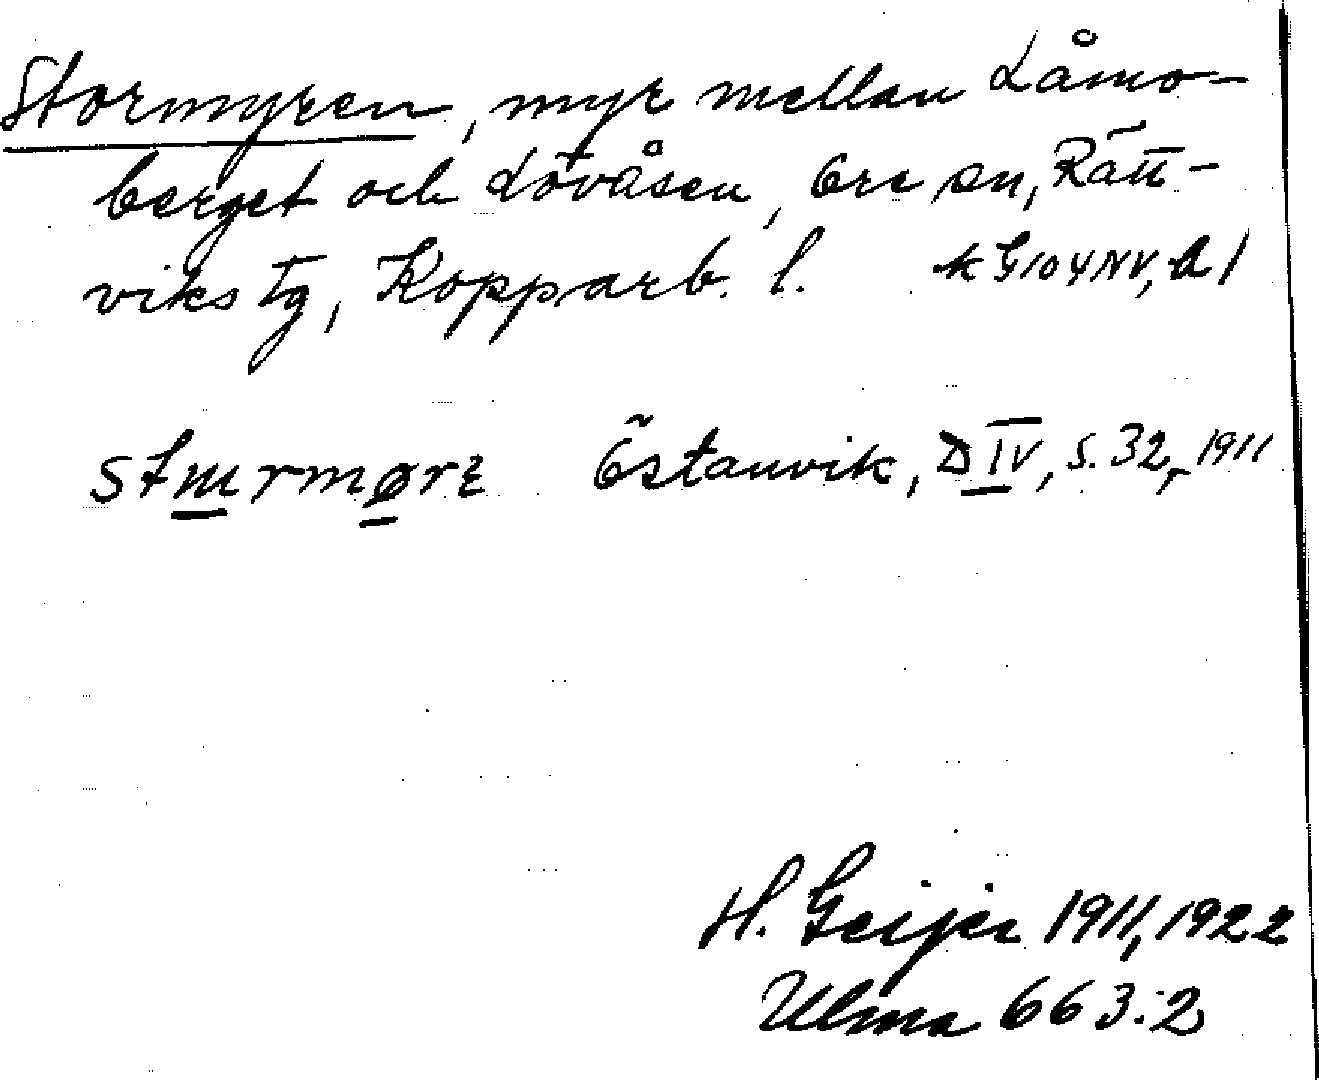 Stormyren, myr mellan Låmo-
berget och Lövåsen, Ore sn, Rätt-
viks tg, Kopparb. l. k G104NV, a 1
Östanvik, D IV, s. 32, 1911
H. Geijer 1911, 1922
Ulma 663:2